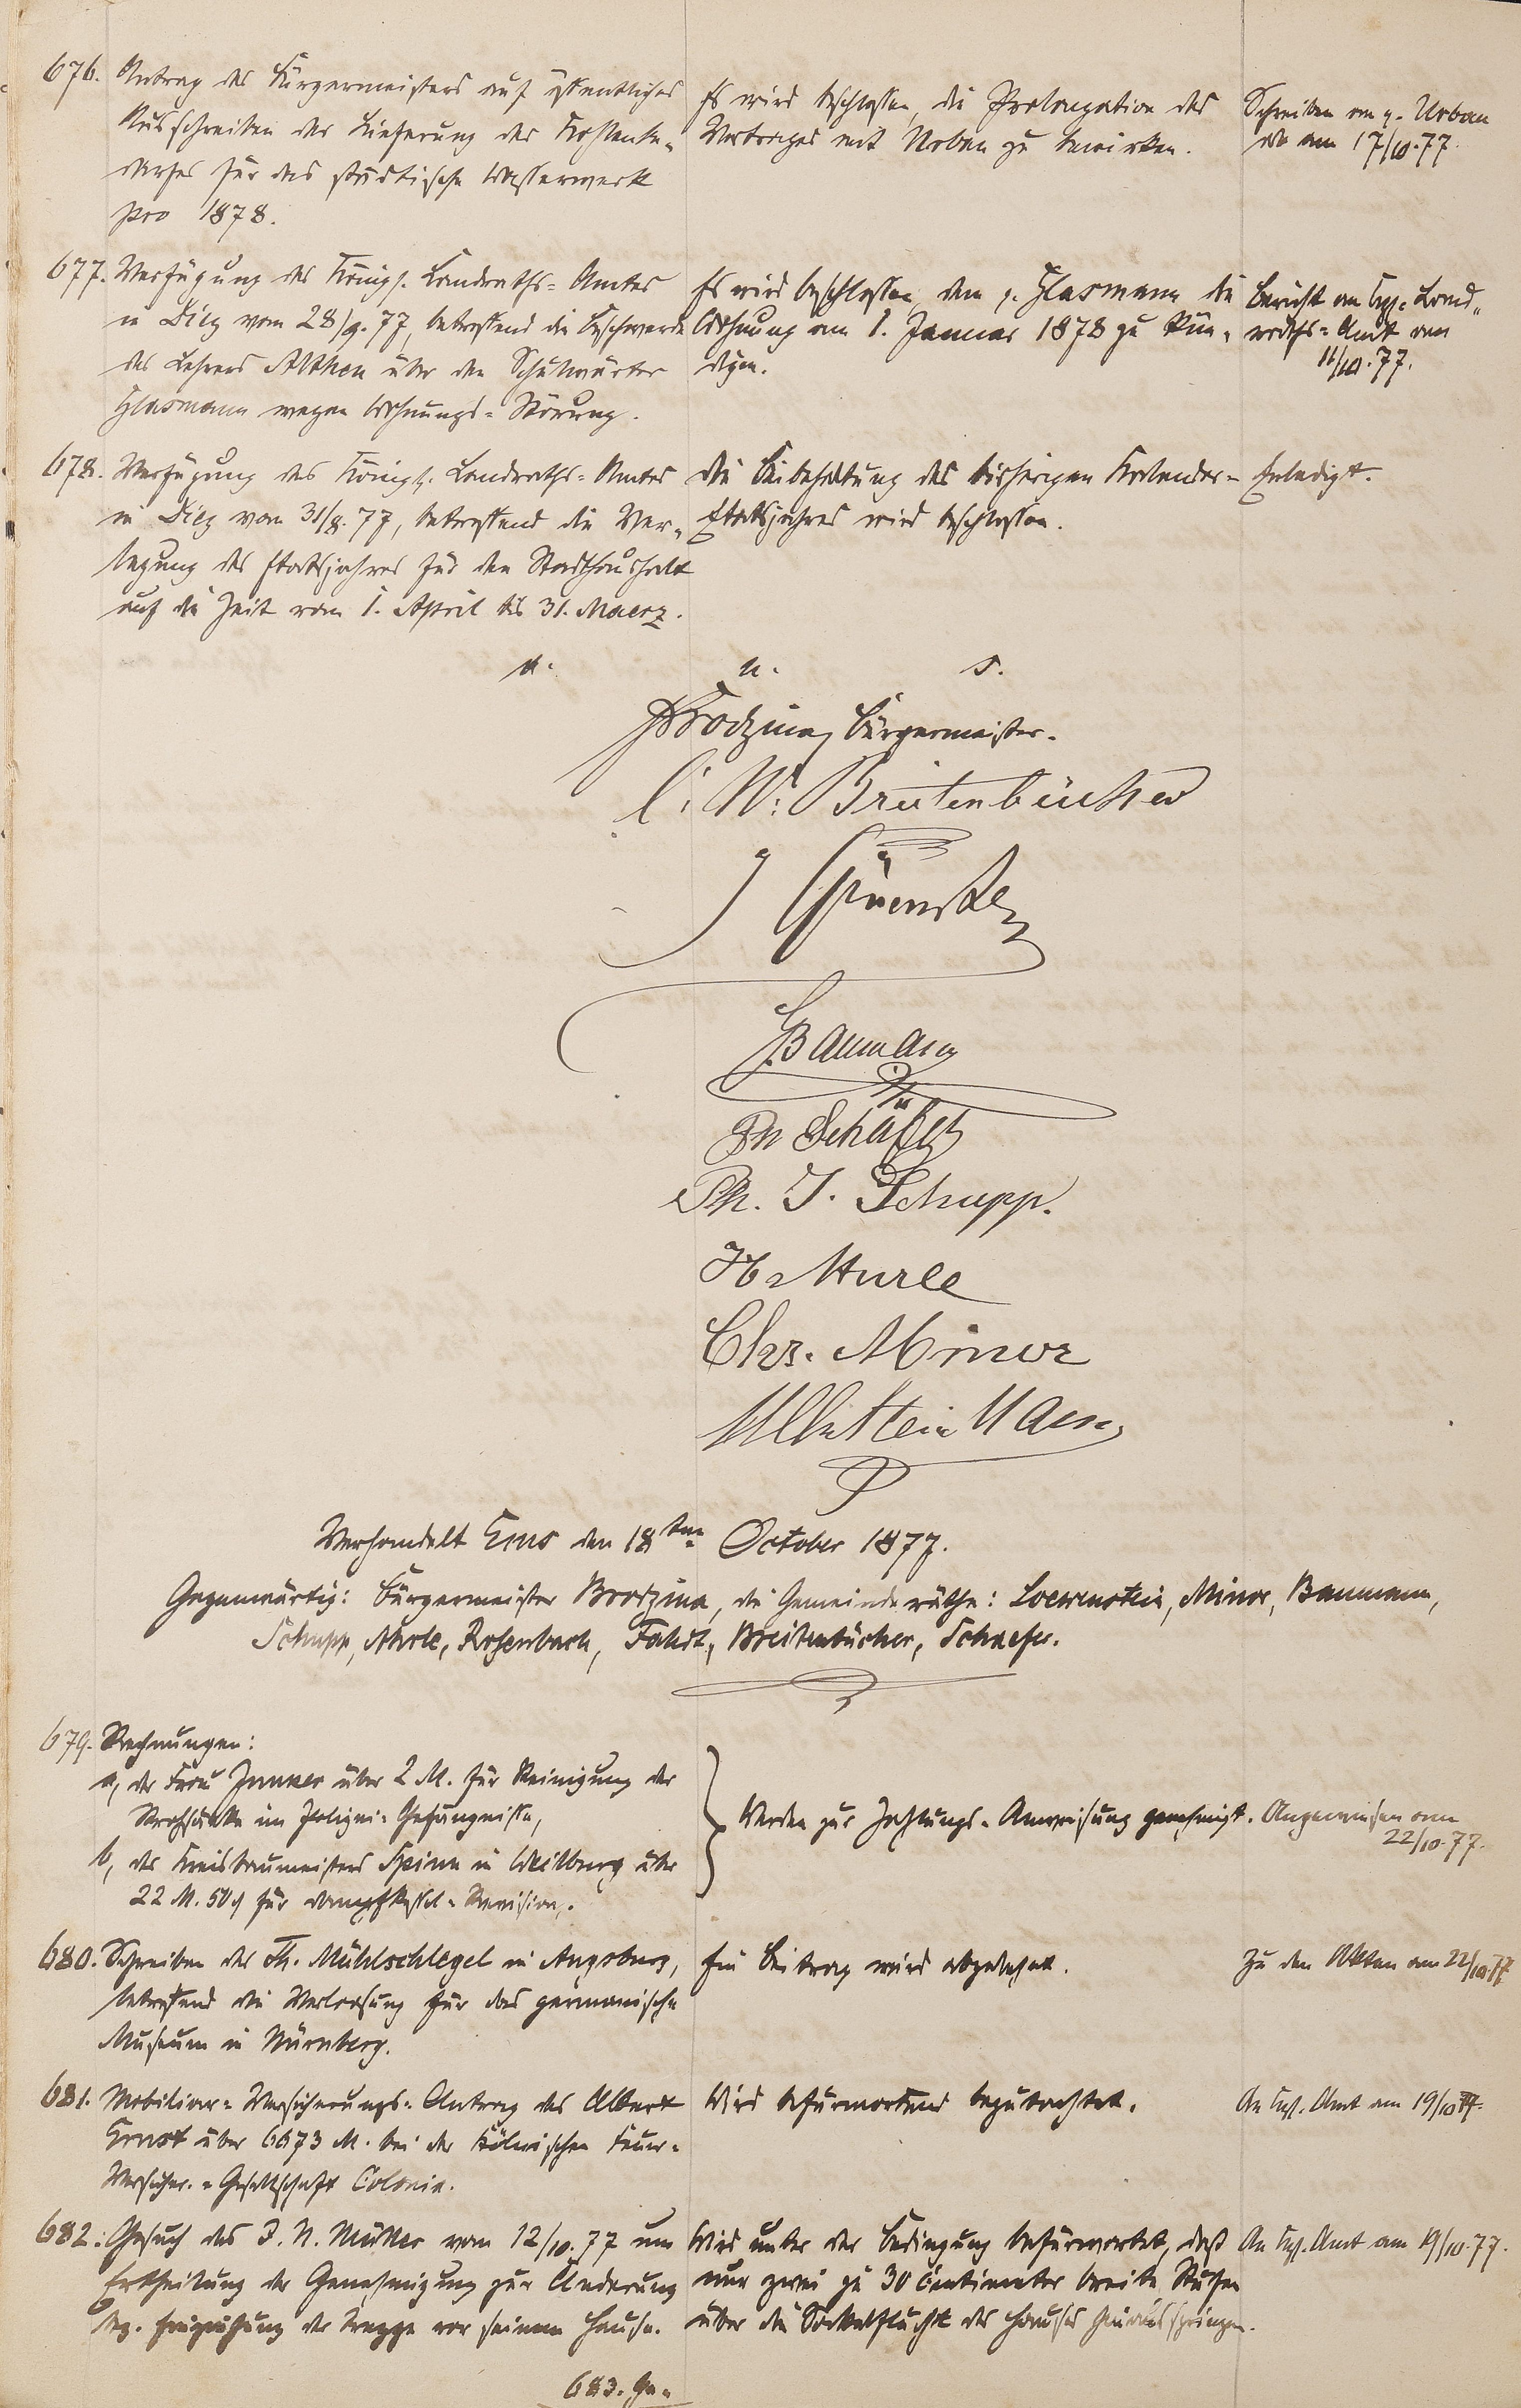 676. Antrag des Bürgermeisters auf öffentliches
Ausschreiben der Lieferung des Kohlenbe-
darfes für das städtische Wasserwerk
pro 1878.
Es wird beschlossen, die Prolongation des
Vertrages mit Urban zu bewirken.
Schreiben an p. Urban
ab am 17/10.77.
677. Verfügung des Königl. Landraths-Amtes
in Diez vom 28/9.77, betreffend die Beschwerde
des Lehrers Althen über den Schulwärter
Glasmann wegen Wohnungs-Störung.
Es wird beschlossen, dem p. Glasmann die
Wohnung am 1. Januar 1878 zu kün-
digen.
Bericht an Kgl. Land-
raths-Amt am
11/10.77.
678. Verfügung des Königl. Landraths-Amtes
in Diez vom 31/8.77, betreffend die Ver-
legung des Etatsjahres für den Stadthaushalt
auf die Zeit vom 1. April bis 31. Maerz.
Die Beibehaltung des bisherigen Kalender-
Etatsjahres wird beschlossen.
Erledigt.
a. u. s.
Brodzina Bürgermeister.
C. W. Breitenbücher
Baumann
Ph Schäfer
Ph. J. Schupp.
H Ahrle
Chr. Minor
Verhandelt Ems den 18ten October 1877.
Gegenwärtig: Bürgermeister Brodzina, die Gemeinderäthe: Loewenstein, Minor, Baumann,
Schupp, Ahrle, Rosenbach, Fahdt, Breitenbücher, Schaefer.
679. Rechnungen:
a, der Frau Junker über 2 M. für Reinigung der
Strohsäcke im Polizei-Gefängnisse,
b, des Kreisbaumeisters Spinn in Weilburg über
22 M. 50 ₰ für Dampfkessel-Revision.
Werden zur Zahlungs-Anweisung genehmigt.
Angewiesen am
22/10.77.
680. Schreiben des Th. Mühlschlegel in Augsburg,
betreffend die Verloosung für das germanische
Museum in Nürnberg.
Ein Beitrag wird abgelehnt.
Zu den Akten am 22/10.77
681. Mobiliar-Versicherungs-Antrag des Albert
Ernst über 6673 M. bei der Kölnischen Feuer-
Versicher.-Gesellschaft Colonia.
Wird befürwortend begutachtet.
An Kgl. Amt am 19/10.77.
682. Gesuch des J. N. Müller vom 12/10.77 um
Ertheilung der Genehmigung zur Änderung
der Treppe vor seinem Hause.
Wird unter der Bedingung befürwortet, daß
nur zwei zu 30 Centimeter breite Stufen
über die Sockelflucht des Hauses hinausspringen.
An Kgl. Amt am 19/10.77.
683. Ge-